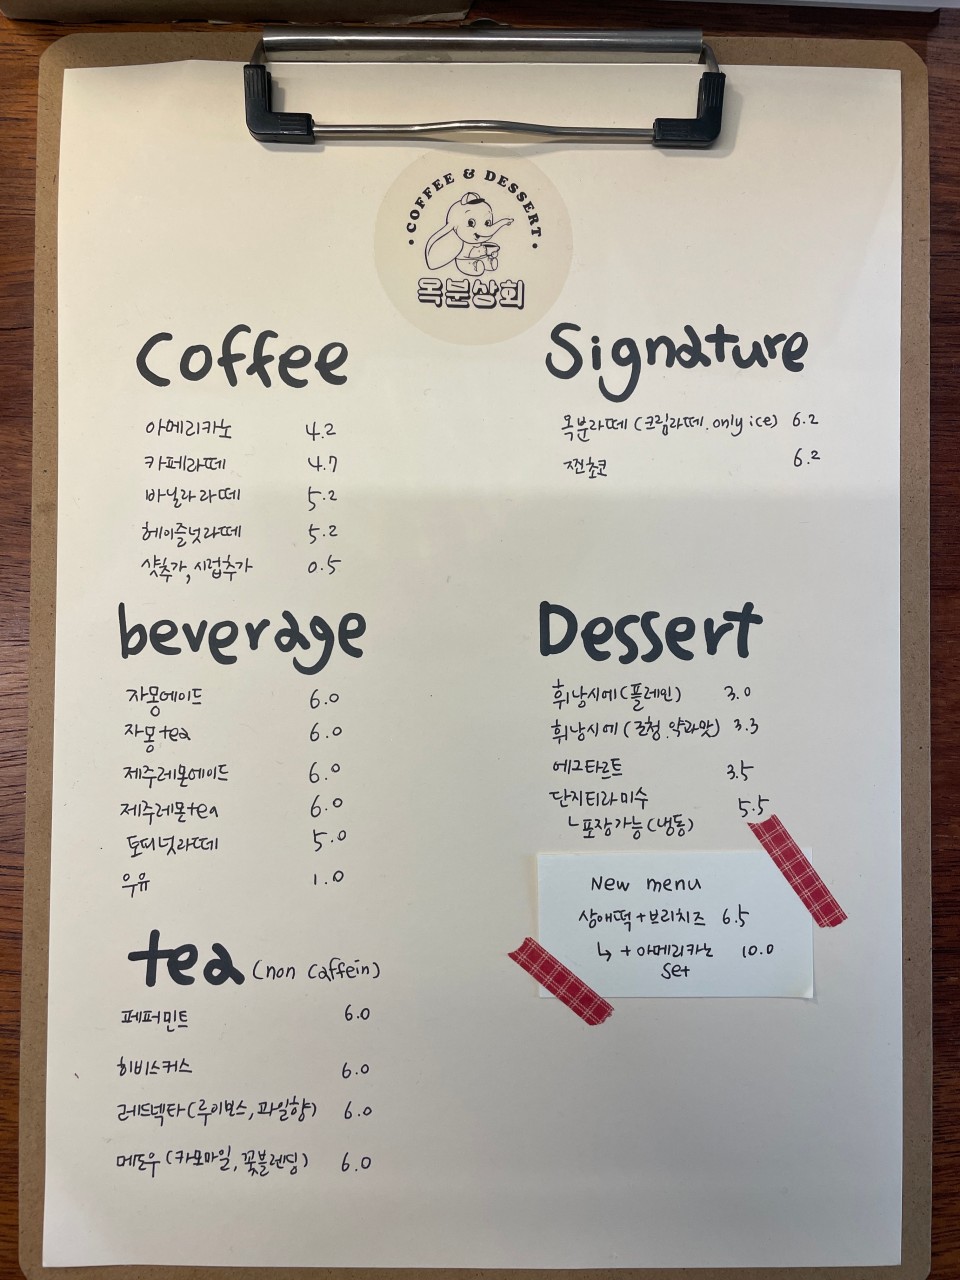 • COFFEE & DESSERT •
옥분상회
Coffee
아메리카노 4.2
카페라떼 4.7
바닐라 라떼 5.2
헤이즐넛라떼 5.2
샷추가, 시럽추가 0.5
beverage
자몽에이드 6.0
자몽tea 6.0
제주레몬에이드 6.0
제주레몬tea 6.0
토피넛라떼 5.0
우유 1.0
tea (non caffein)
페퍼민트 6.0
히비스커스 6.0
레드넥타(루이보스, 과일향) 6.0
메도우 (카모마일, 꽃블렌딩) 6.0
Signature
옥분라떼 (크림라떼. only ice) 6.2
찐초코 6.2
Dessert
휘낭시에(플레인) 3.0
휘낭시에 (조청.약과맛) 3.3
에그타르트 3.5
단지티라미수 5.5
ㄴ포장가능(냉동)
New menu
상애떡+브리치즈 6.5
↳ +아메리카노 10.0
set